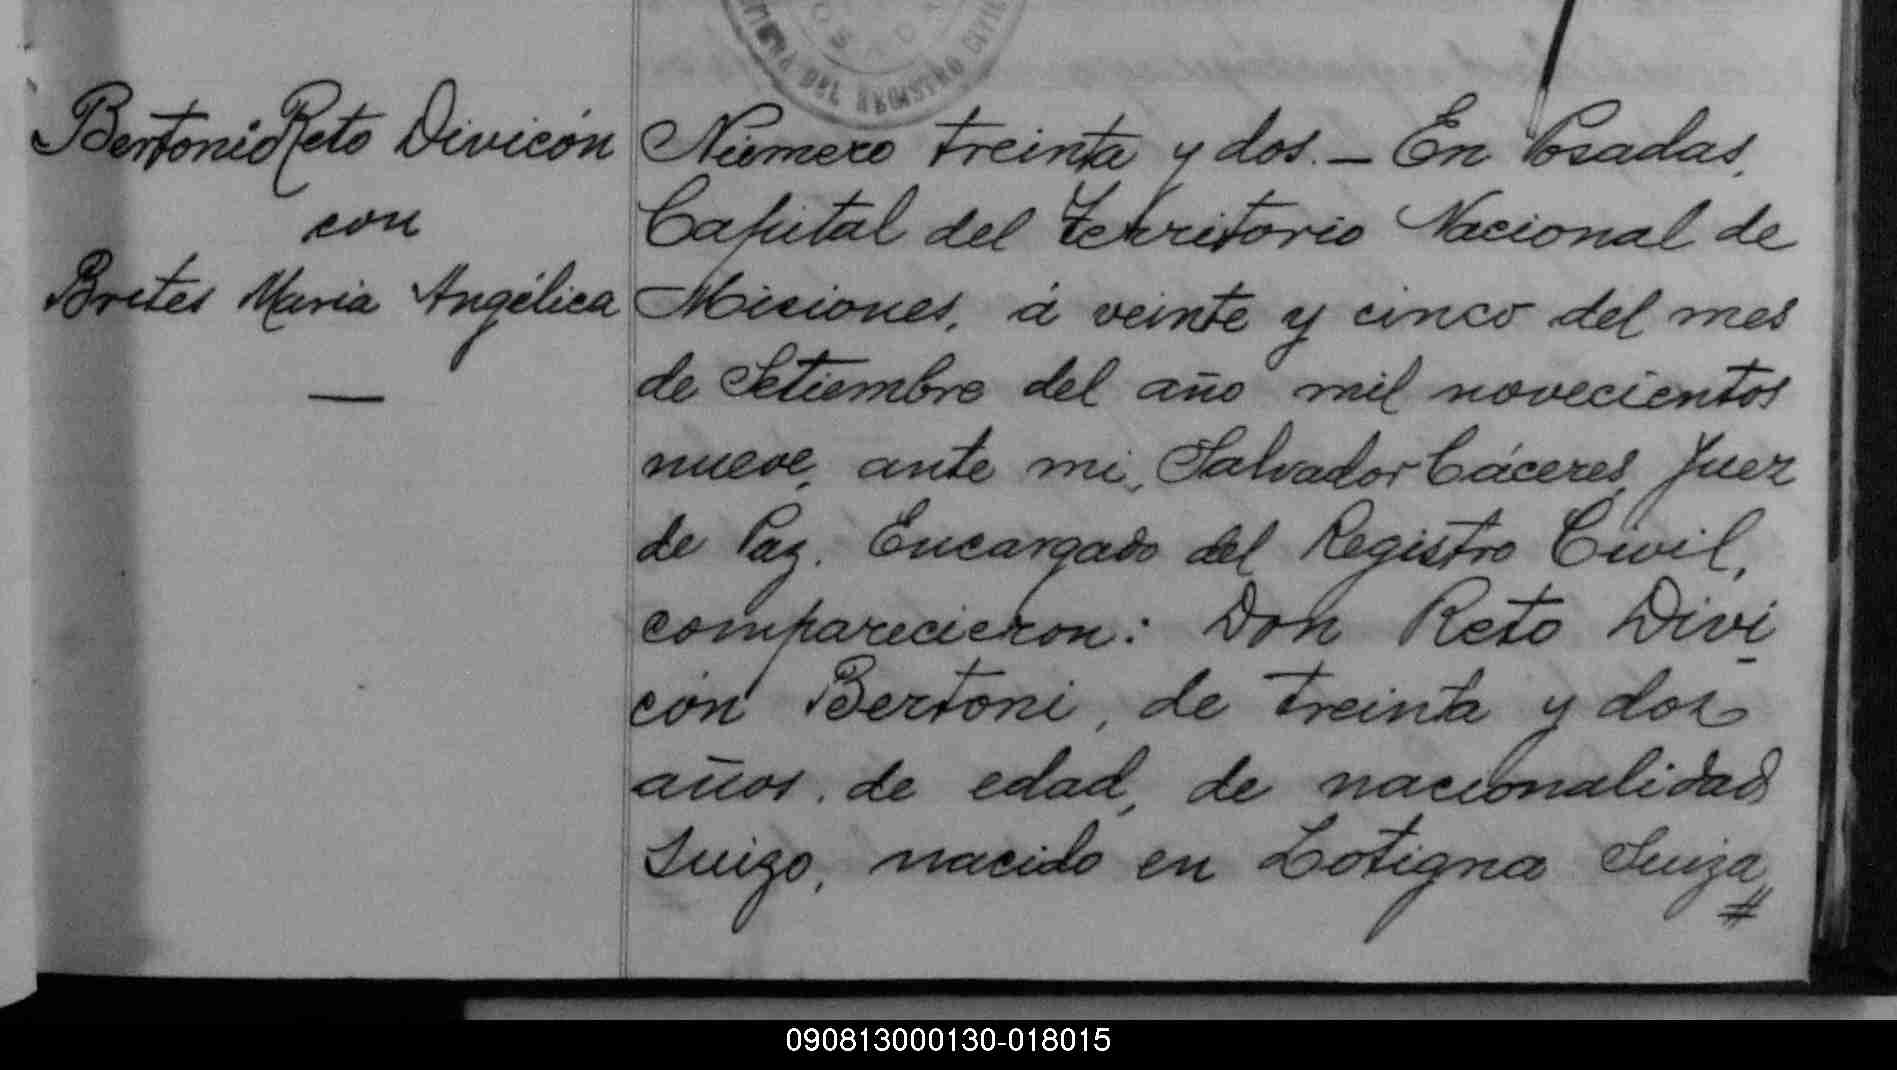 DEL REGISTRO CIVIL
Bertoni Reto Divicón
con
Brites Maria Angélica
Número treinta y dos. — En Posadas,
Capital del Territorio Nacional de
Misiones, á veinte y cinco del mes
de Setiembre del año mil novecientos
nueve, ante mi, Salvador Cáceres, Juez
de Paz, Encargado del Registro Civil,
comparecieron: Don Reto Divi
cón Bertoni, de treinta y dos
años, de edad, de nacionalidad
Suizo, nacido en Lotigna Suiza
090813000130-018015